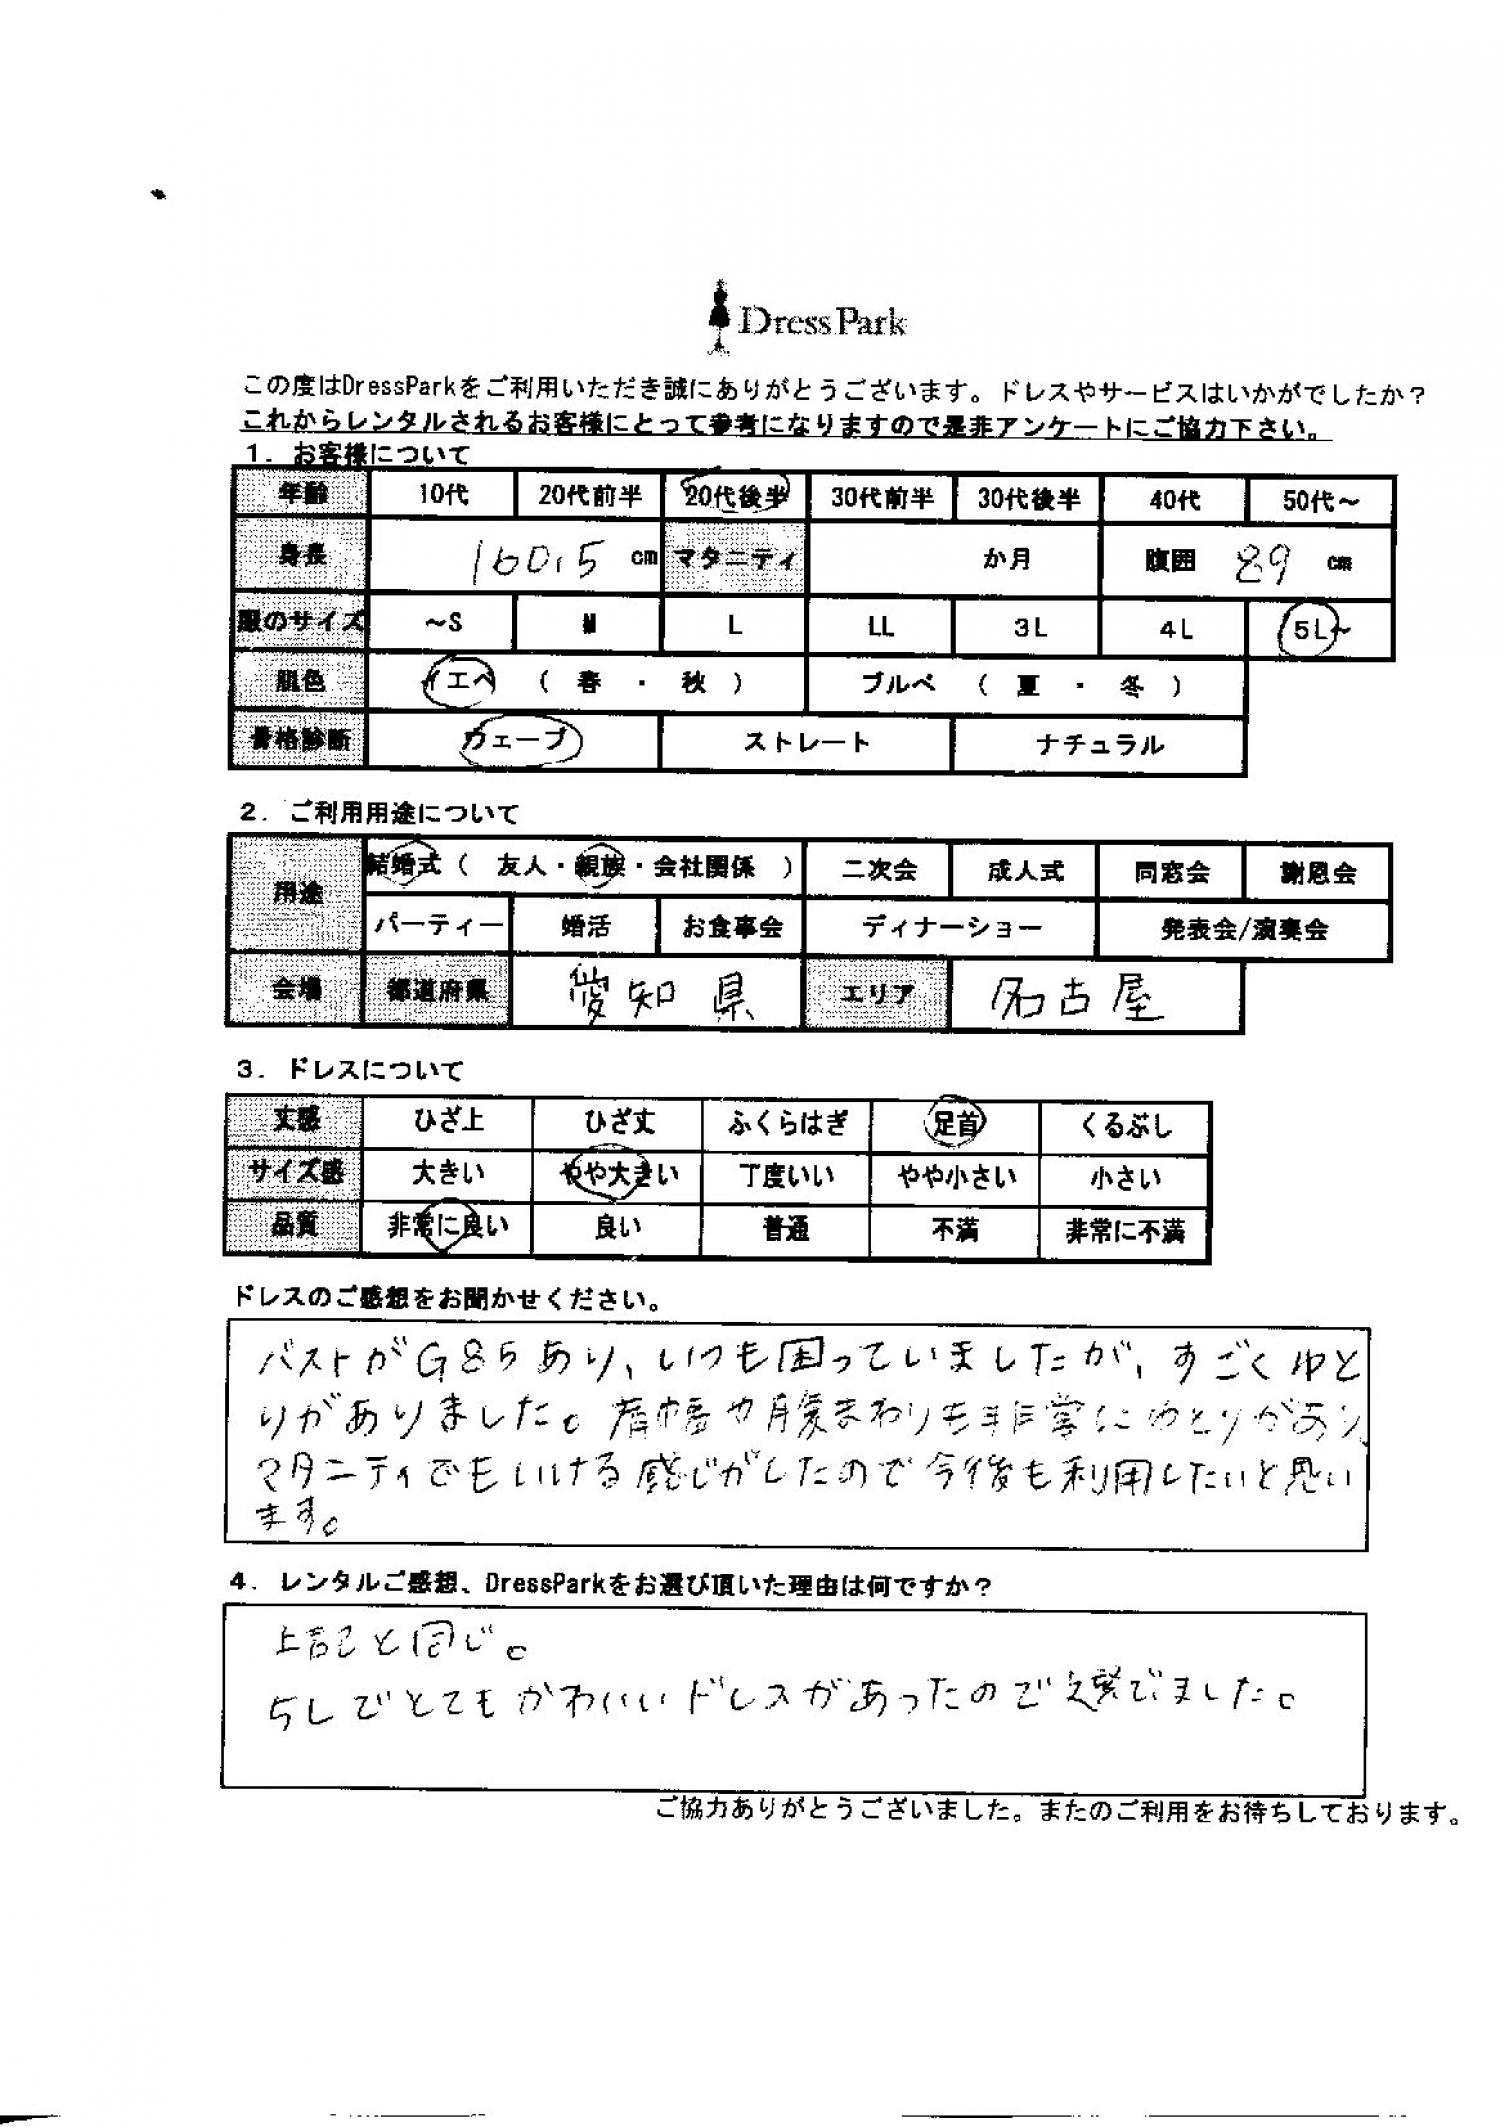 DressPark
この度はDressParkをご利用いただき誠にありがとうございます。ドレスやサービスはいかがでしたか？
これからレンタルされるお客様にとって参考になりますので是非アンケートにご協力下さい。
1. お客様について
年齢 10代 20代前半 20代後半 30代前半 30代後半 40代 50代～
身長 160.5 cm マタニティ か月 腹囲 89 cm
服のサイズ ～S M L LL 3L 4L 5L～
肌色 イエベ （ 春 ・ 秋 ） ブルベ （ 夏 ・ 冬 ）
骨格診断 ウェーブ ストレート ナチュラル
2. ご利用用途について
用途 結婚式（ 友人・親族・会社関係 ） 二次会 成人式 同窓会 謝恩会
パーティー 婚活 お食事会 ディナーショー 発表会/演奏会
会場 都道府県 愛知県 エリア 名古屋
3. ドレスについて
丈感 ひざ上 ひざ丈 ふくらはぎ 足首 くるぶし
サイズ感 大きい やや大きい 丁度いい やや小さい 小さい
品質 非常に良い 良い 普通 不満 非常に不満
ドレスのご感想をお聞かせください。
バストがG85あり、いつも困っていましたが、すごくゆと
りがありました。肩幅や腹まわりも非常にゆとりがあり、
マタニティでもいける感じがしたので今後も利用したいと思い
ます。
4. レンタルご感想、DressParkをお選び頂いた理由は何ですか？
上記と同じ。
5Lでとてもかわいいドレスがあったので選びました。
ご協力ありがとうございました。またのご利用をお待ちしております。